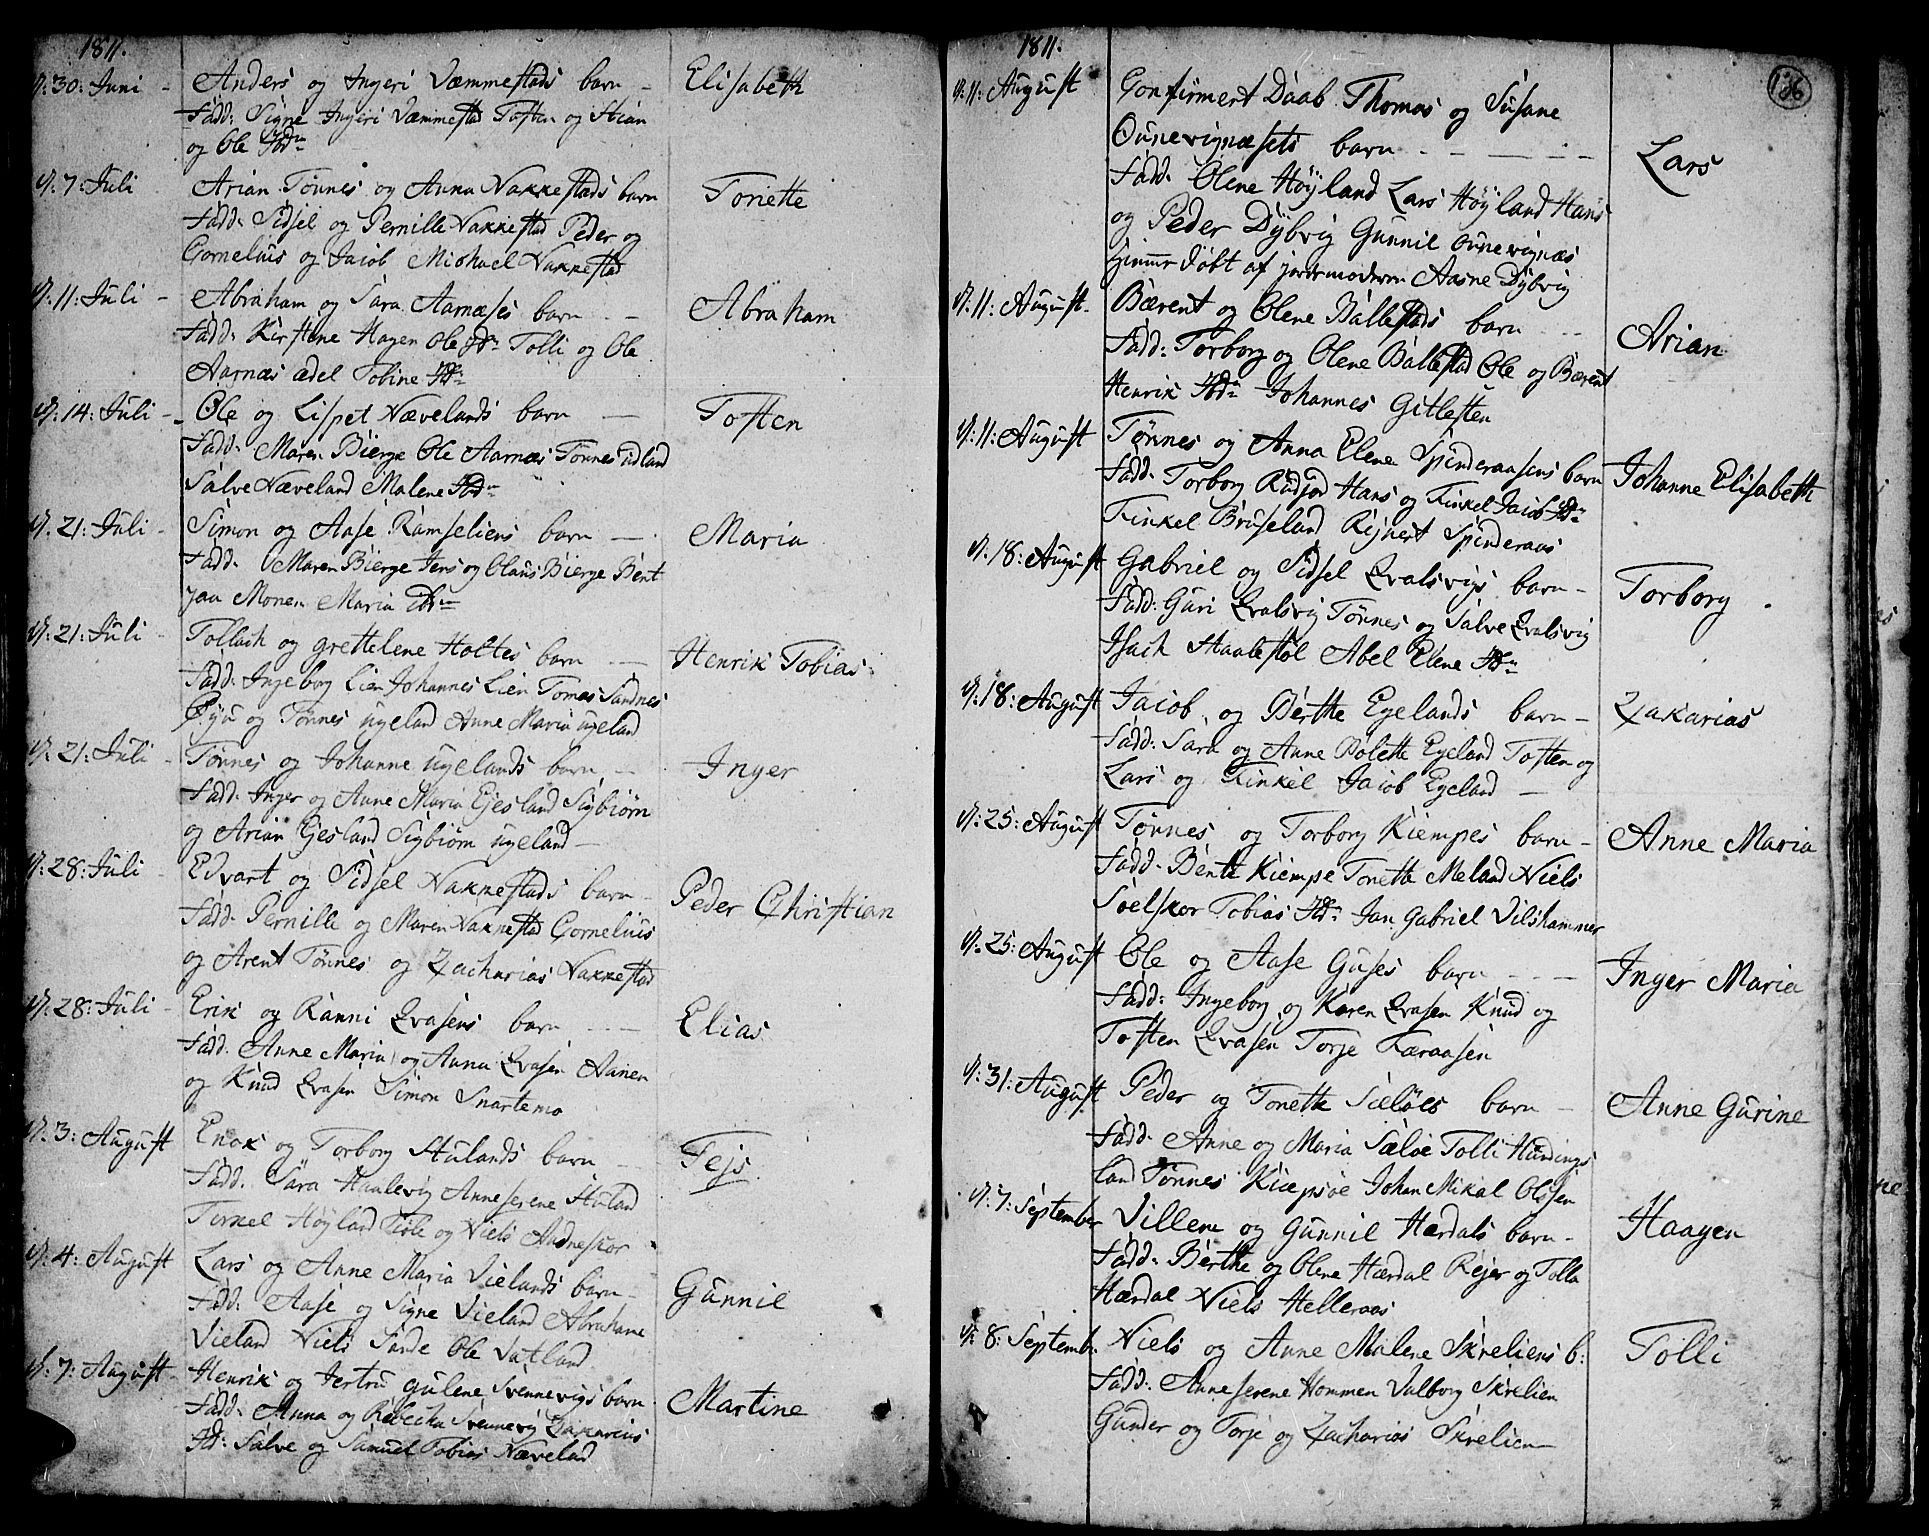 1811.
d: 30: Juni - Anders og Ingeri Væmmestads barn - Elisabeth
Fadd: Signe Ingeri Væmmestad Tosten og Stian
og Ole Ibdm
d: 7: Juli Arian Tønnes og Anna Nakkestads barn Toriette
Fadd: Sidsel og Pernille Nakkestad Peder og
Cornelius og Jacob Michael Nakkestad
d: 11: Juli - Abraham og Sara Aarnæses barn - Abraham
Fadd: Kirstine Hagen Ole Ibdm Tolli og Ole
Aarnæs Ædel Tobine Ibdm
d: 14: Juli - Ole og Lispet Nævelands barn - Tosten
Fadd: Maren Bierge Ole Aarnæs Tønnes Udland
Salve Næveland Malene Ibdm
d: 21: Juli - Simon og Aase Ramseliens barn - Maria
Fadd: Maren Bierge Jens og Olaus Bierge Bent
Jaa Monen Maria Ibdm
d: 21: Juli - Tollach og Grettelene Holtes barn - Henrik Tobias
Fadd: Ingeborg Lien Johannes Lien Tomas Sandnes
Øyu og Tønnes Ugeland Anne Maria Ugeland
d: 21: Juli - Tønnes og Johanne Ugelands barn - Inger
Fadd: Inger og Anne Maria Ejesland Sigbiørn
og Arian Ejesland Sigbiørn Ugeland -
d: 28: Juli - Edvart og Sidsel Nakkestads barn - Peder Christian
Fadd: Pernille og Maren Nakkestad Cornelius
og Arent Tønnes og Zacharias Nakkestad
d: 28: Juli - Erik og Ranni Qvasens barn - Elias
Fadd: Anne Maria og Anna Qvasen Aanen
og Knud Qvasen Simon Snartemo
d: 3: August Enok og Torborg Stulands barn - Tejs
Fadd: Sara Haalevig Anneserene Stuland
Torkel Høyland Tole og Niels Andneskor
d: 4: August Lars og Anne Maria Vielands barn - Gunnil
Fadd: Aase og Signe Vieland Abrahame
Vieland Niels Sande Ole Vatland
d: 7: August - Henrik og Jertru Gulene Svennevigs barn Martine
Fadd: Anna og Rebecha Svennevig Zakarius
Ibd: Salve og Samuel Tobias Næveland
1811.
136
d: 11: August Confirmert Daab Thomas og Susane
Ounevignæsets barn - - - Lars
Fadd: Olene Høyland Lars Høyland Hans
og Peder Dybvig Gunnil Ounevignæs
hjemme døbt af jordemoderen Aasne Dybvig
d: 11: August - Bærent og Olene Ballestads barn - Arian
Fadd: Torborg og Olene Ballestad Ole og Bærent
Henrik Ibdm Johannes Gitlesten
d: 11: August Tønnes og Anna Elene Spinderaasens barn Johanne Elisabeth
Fadd: Torborg Rudjor Hans og Tinkel Jacob Ibdm
Tinkel Bruseland Rejnert Spinderaas
d: 18: August Gabriel og Sidsel Qvalsvigs barn - Torborg
Fadd: Guri Qvalsvig Tønnes og Salve Qvalsvig
Isach Haalestol Abel Elene Ibdm
d: 18: August Jacob og Berthe Egelands barn - Zakarias
Fadd: Sara og Anne Bolette Egeland Tosten og
Lars og Tinkel Jacob Egeland -
d: 25: August Tønnes og Torborg Kiempes barn - Anne Maria
Fadd: Bente Kiempe Tonette Meland Niels
Soelskor Tobias Ibdm Jan Gabriel Vilshammer
d: 25: August Ole og Aase Guses barn - - Inger Maria
Fadd: Ingeborg og Karen Qvasen Knud og
Tosten Qvasen Torje Færaasen
d: 31: August Peder og Tonette Sæløes barn - Anne Gurine
Fadd: Anne og Maria Sæløe Tolli Hundings
land Tønnes Kiepsøe Johan Mikal Olssen
d: 7: September Villem og Gunnil Hærdals barn - Haagen
Fadd: Berthe og Olene Hærdal Rejer og Tolla
Hærdal Niels Helleraas
d: 8: Septemb. Niels og Anne Malene Skreliens b: Tolli
Fadd: Anneserene Hommen Valborg Skrelien
Gunder og Torje og Zacharias Skrelien